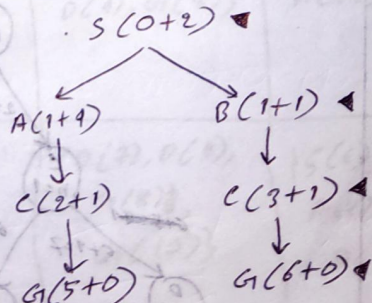 S(0+2)
A(1+4) B(1+1)
C(2+1) C(3+1)
G(5+0) G(6+0)